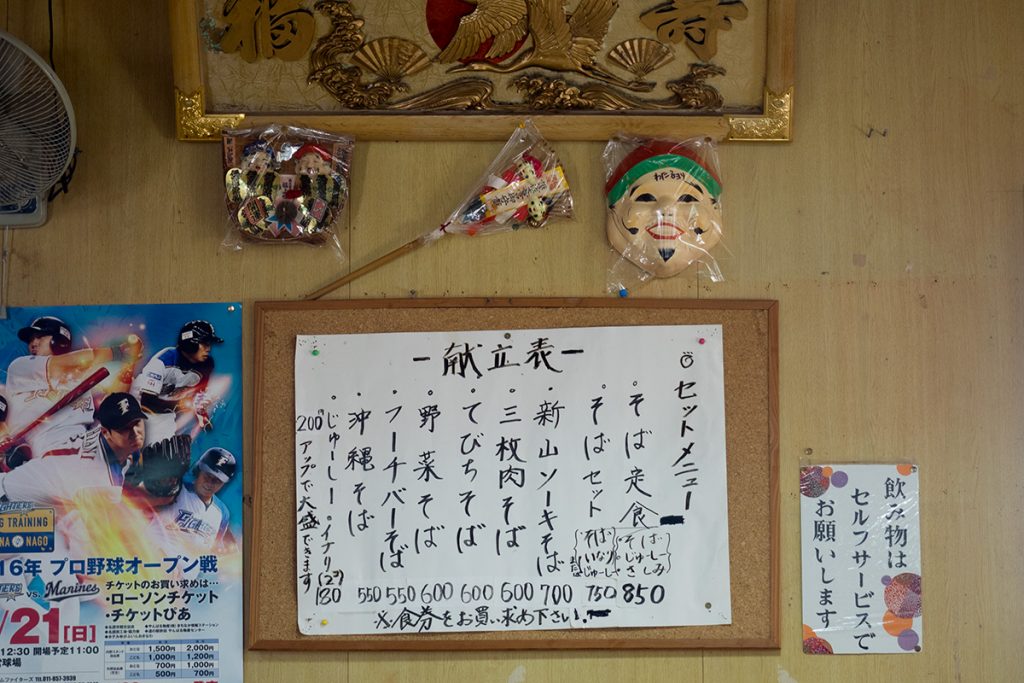 福
寿
－献立表－
セットメニュー
・そば定食
そば
じゅーしー
さしみ
850
・そばセット
そば
いなり
じゅーしー
750
・新山ソーキそば
700
・三枚肉そば
600
・てびちそば
600
・野菜そば
600
・フーチバーそば
550
・沖縄そば
550
・じゅーしー・イナリ(2ケ)
180
200円アップで大盛できます
※食券をお買い求め下さい。
飲み物は
セルフサービスで
お願いします
FIGHTERS
TRAINING
NAGO
16年 プロ野球オープン戦
vs. Marines
チケットのお買い求めは…
・ローソンチケット
・チケットぴあ
/21[日]
12:30 開場予定11:00
1,500円 2,000円
1,000円 1,200円
700円 1,000円
500円 700円
TEL.011-857-3939